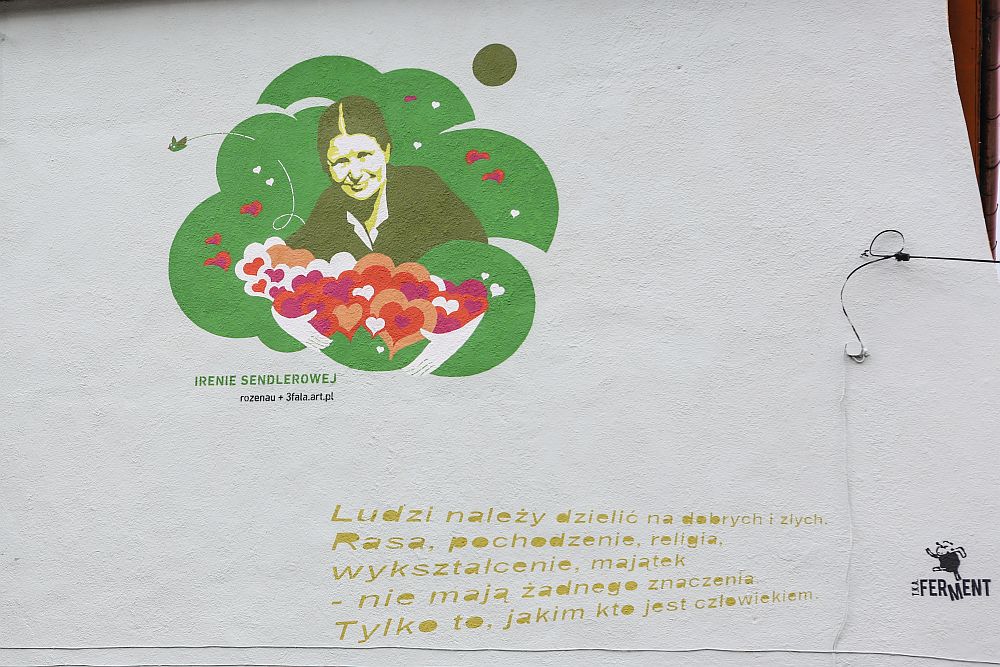 IRENIE SENDLEROWEJ
rozenau + 3fala.art.pl
Ludzi należy dzielić na dobrych i złych.
Rasa, pochodzenie, religia,
wykształcenie, majątek
- nie mają żadnego znaczenia.
Tylko to, jakim kto jest człowiekiem.
FERMENT